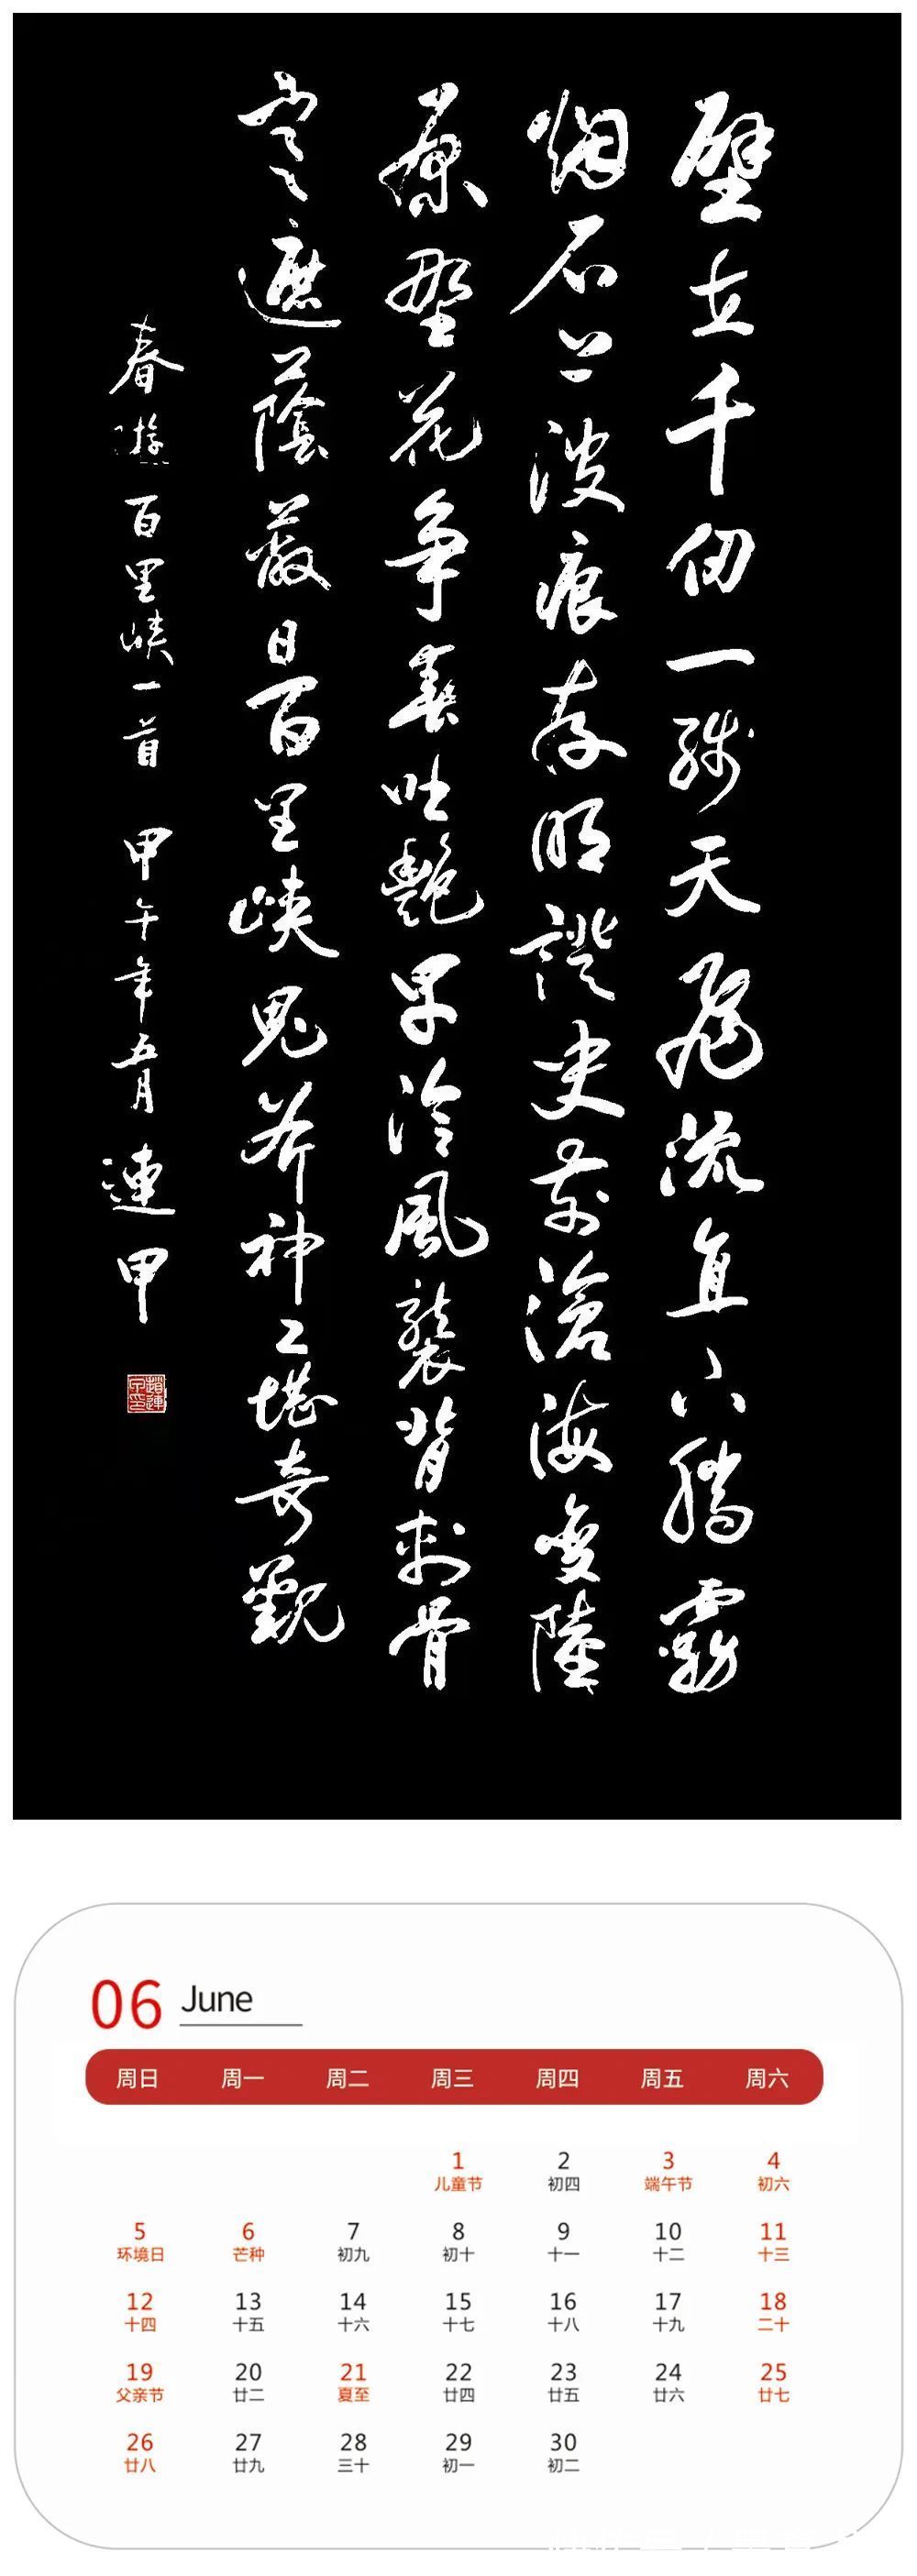 壁立千仞一线天飛流直下腾霧
烟石上波痕存明證史前滄海变陸
原野花争春吐艷早冷風襲背刺骨
寒遮蔭蔽日百里峡鬼斧神工堪奇觀
春遊百里峡一首 甲午年五月 連甲
06 June
周日 周一 周二 周三 周四 周五 周六
1 2 3 4
儿童节 初四 端午节 初六
5 6 7 8 9 10 11
环境日 芒种 初九 初十 十一 十二 十三
12 13 14 15 16 17 18
十四 十五 十六 十七 十八 十九 二十
19 20 21 22 23 24 25
父亲节 廿二 夏至 廿四 廿五 廿六 廿七
26 27 28 29 30
廿八 廿九 三十 初一 初二